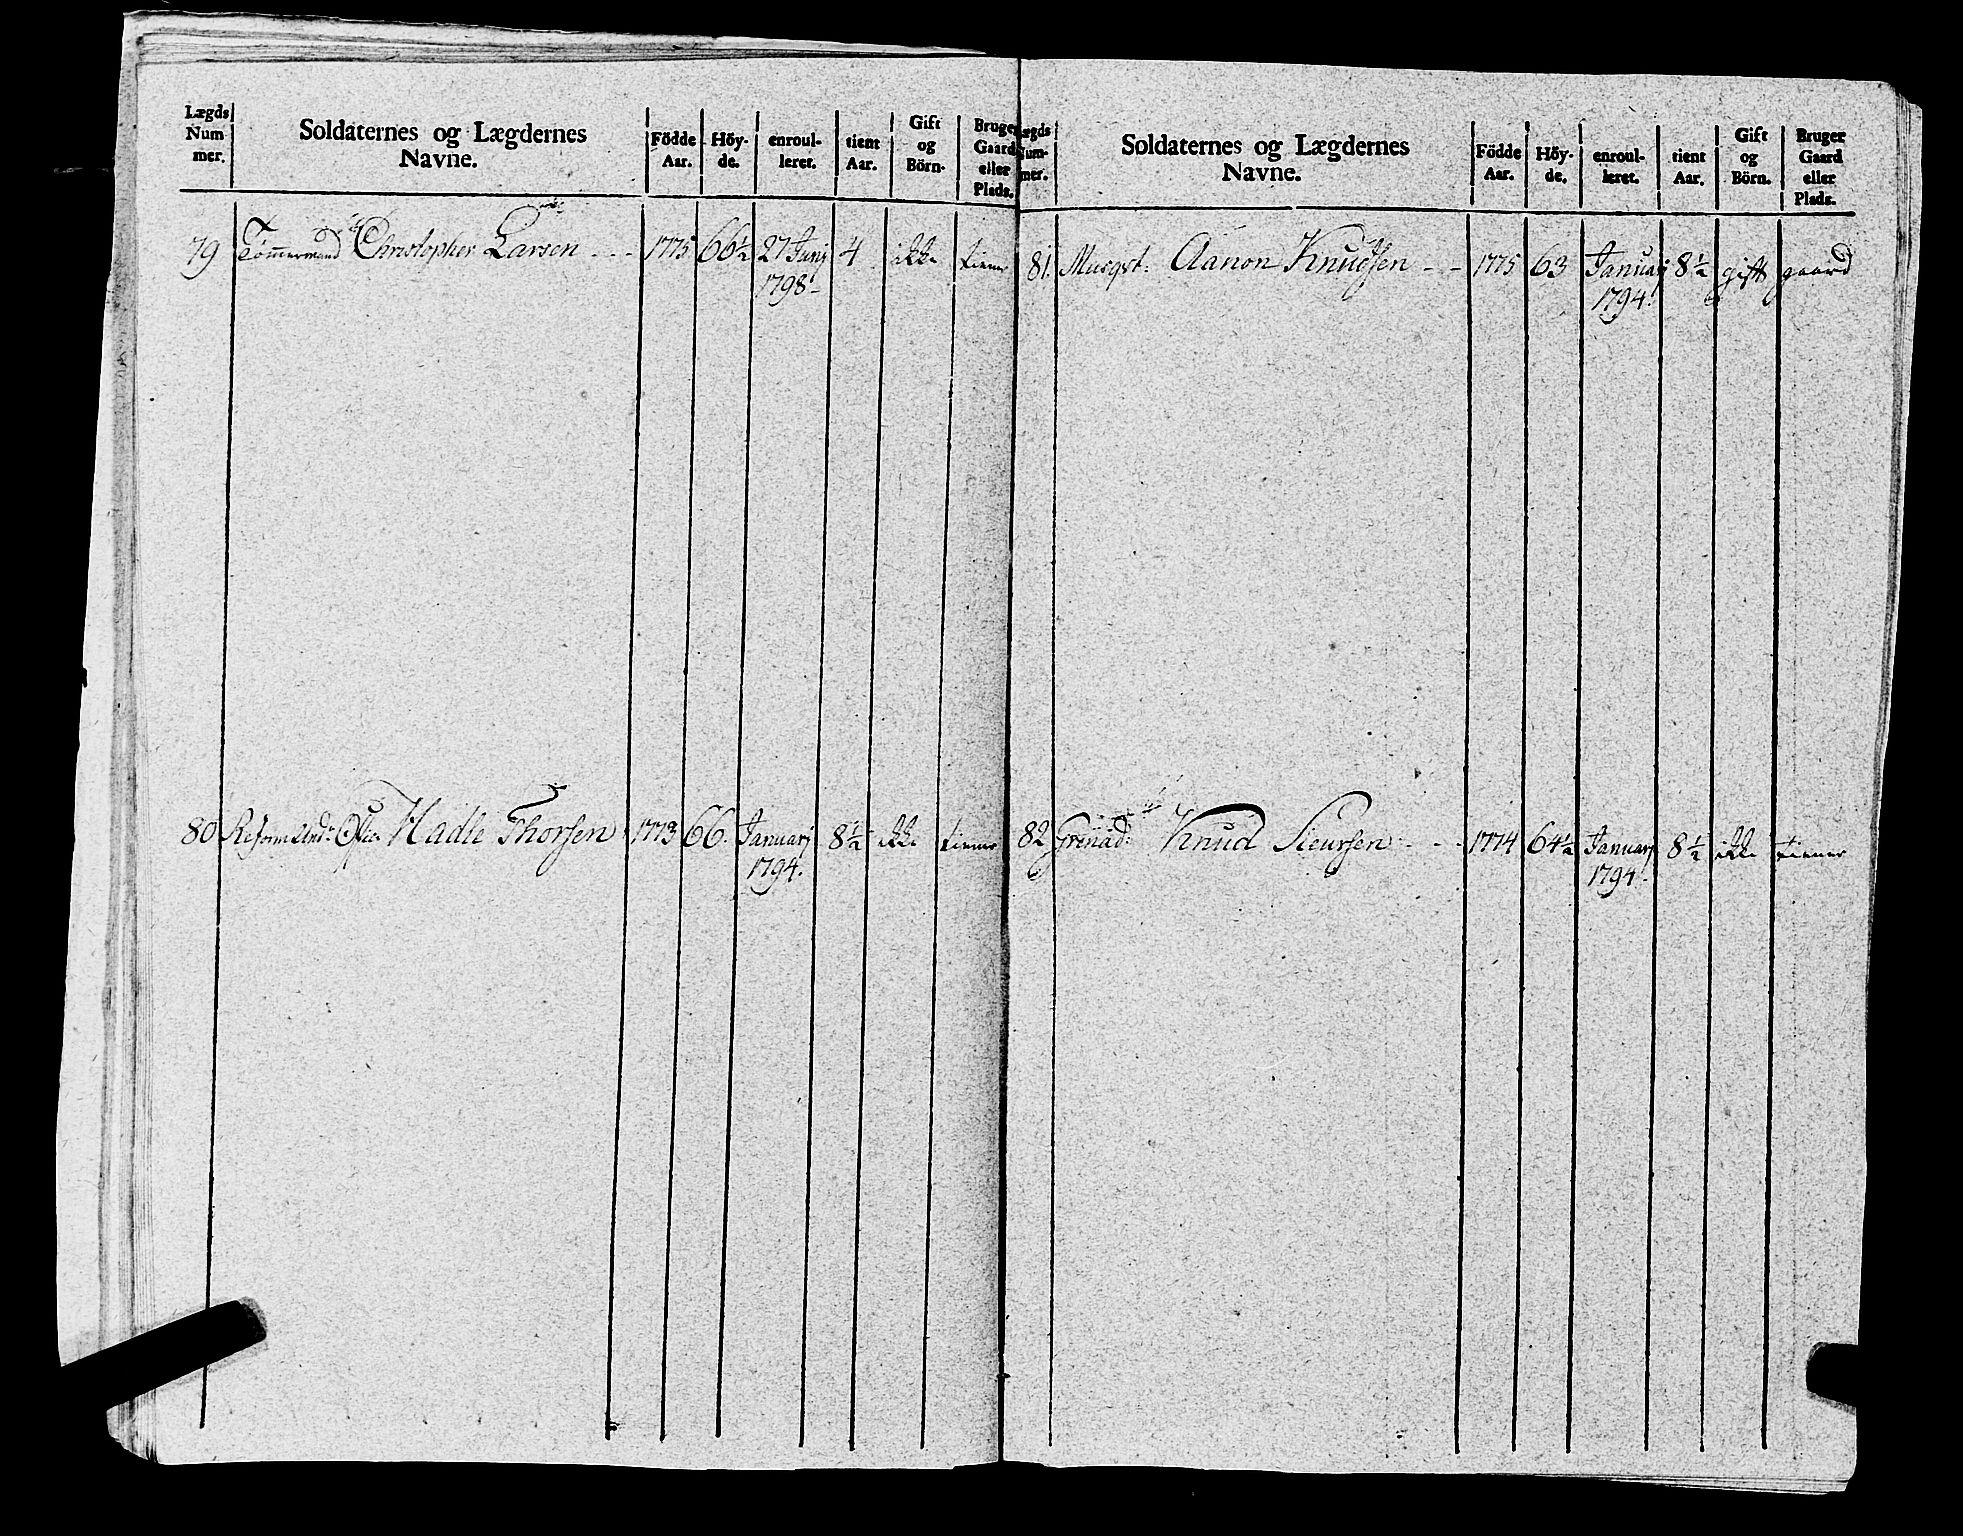 Lægds Num mer.
Soldaternes og Lægdernes Navne.
Födde Aar.
Höy- de.
enroul- leret.
tient Aar.
Gift og Börn.
Bruger Gaard eller Plads.
79 Tømmermand Christopher Larsen - - - 1775 66½ 27 Junj 1798 4 ikke tiener
80 Hadle Thorsen 1773 66 Januarj 1794. 8½ ikke tiener
Lægds Num- mer.
Soldaternes og Lægdernes Navne.
Födde Aar.
Höy- de.
enroul- leret.
tient Aar.
Gift og Börn.
Bruger Gaard eller Plads.
81. Musqt: Aanon Knudsen - - 1775 63 Januarj 1794. 8½ gift gaard
82 Grenad: Knud Sieursen - - - 1774 64½ Januarj 1794. 8½ ikke tiener